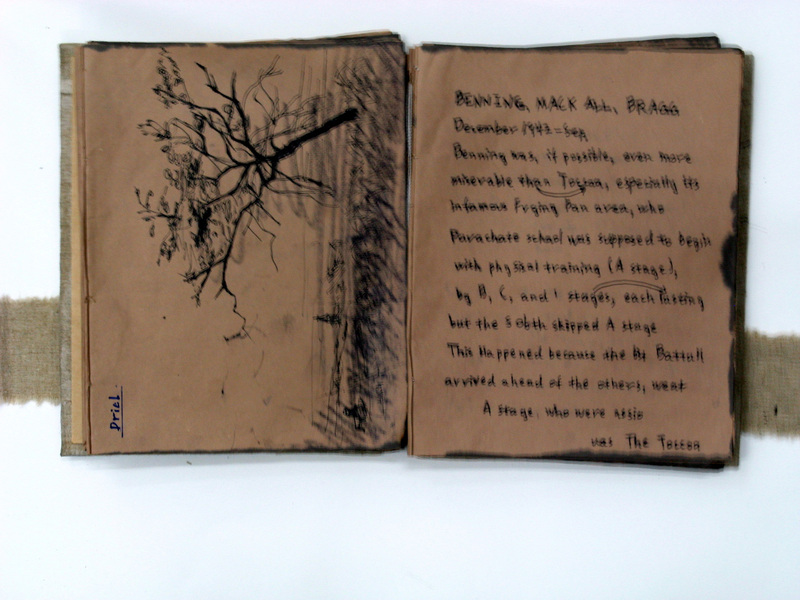 Driel.
BENNING, MACK ALL, BRAGG
December 1942-Sep
Benning was, if possible, even more
miserable than Toccoa, especially its
infamous Frying Pan area, who
Parachute school was supposed to begin
with physical training (A stage),
by B, C, and stages, each lasting
but the 506th skipped A stage
This Happened because the Battali
arrived ahead of the others, went
A stage, who were
was The Toccoa